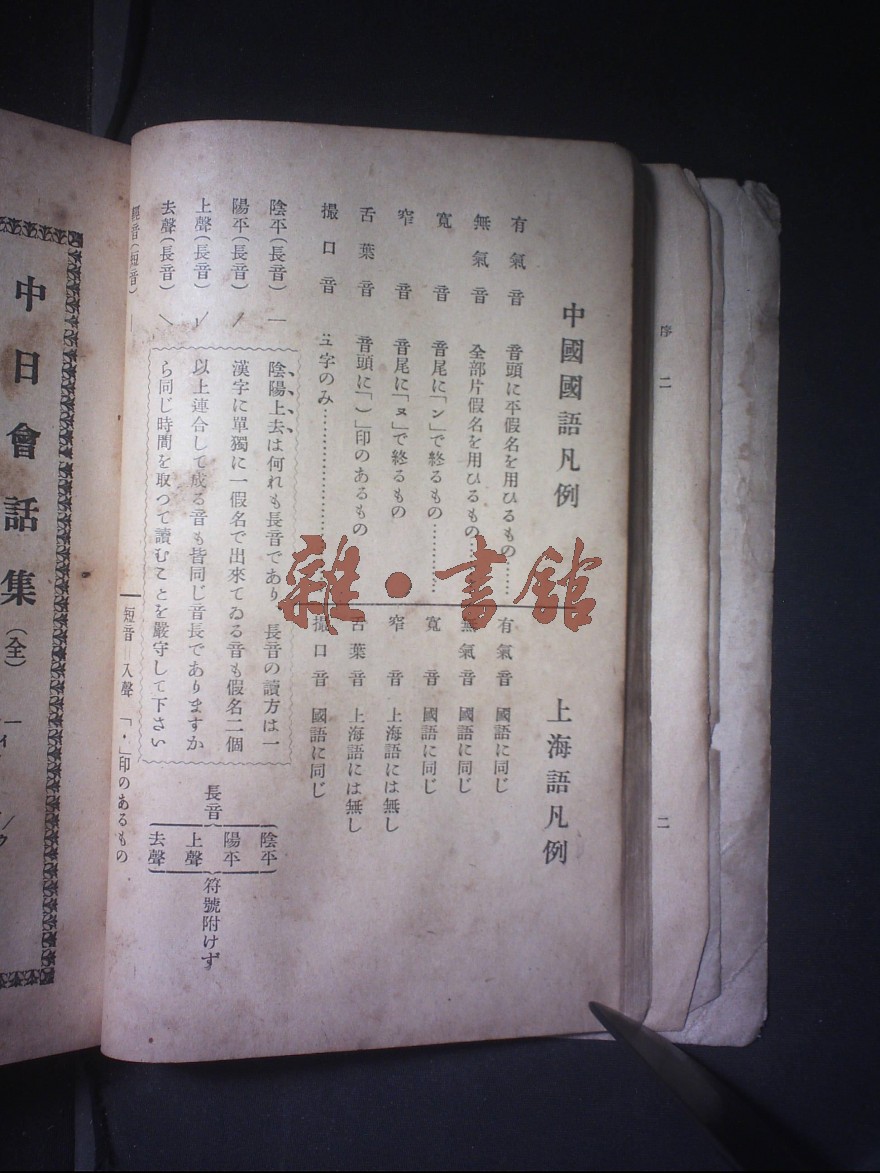 序 二
二
中國國語凡例
有氣音 音頭に平假名を用ひるもの……
無氣音 全部片假名を用ひるもの…
寬音 音尾に「ン」で終るもの…………
窄音 音尾に「ヌ」で終るもの
舌葉音 音頭に「)」印のあるもの
撮口音 ユ字のみ…………………
陰平(長音) —
陽平(長音) ˊ
上聲(長音) ˇ
去聲(長音) ˋ
音(短音) |
陰陽上去は何れも長音であり 長音の讀方は一
漢字に單獨に一假名で出來てゐる音も假名二個
以上連合して成る音も皆同じ音長でありますか
ら同じ時間を取つて讀むことを嚴守して下さい
上海語凡例
有氣音 國語に同じ
無氣音 國語に同じ
寬音 國語に同じ
窄音 上海語には無し
舌葉音 上海語には無し
撮口音 國語に同じ
長音
陰平
陽平
上聲
去聲
符號附けず
短音=入聲 「・」印のあるもの
雜・書館
中日會話集(全)